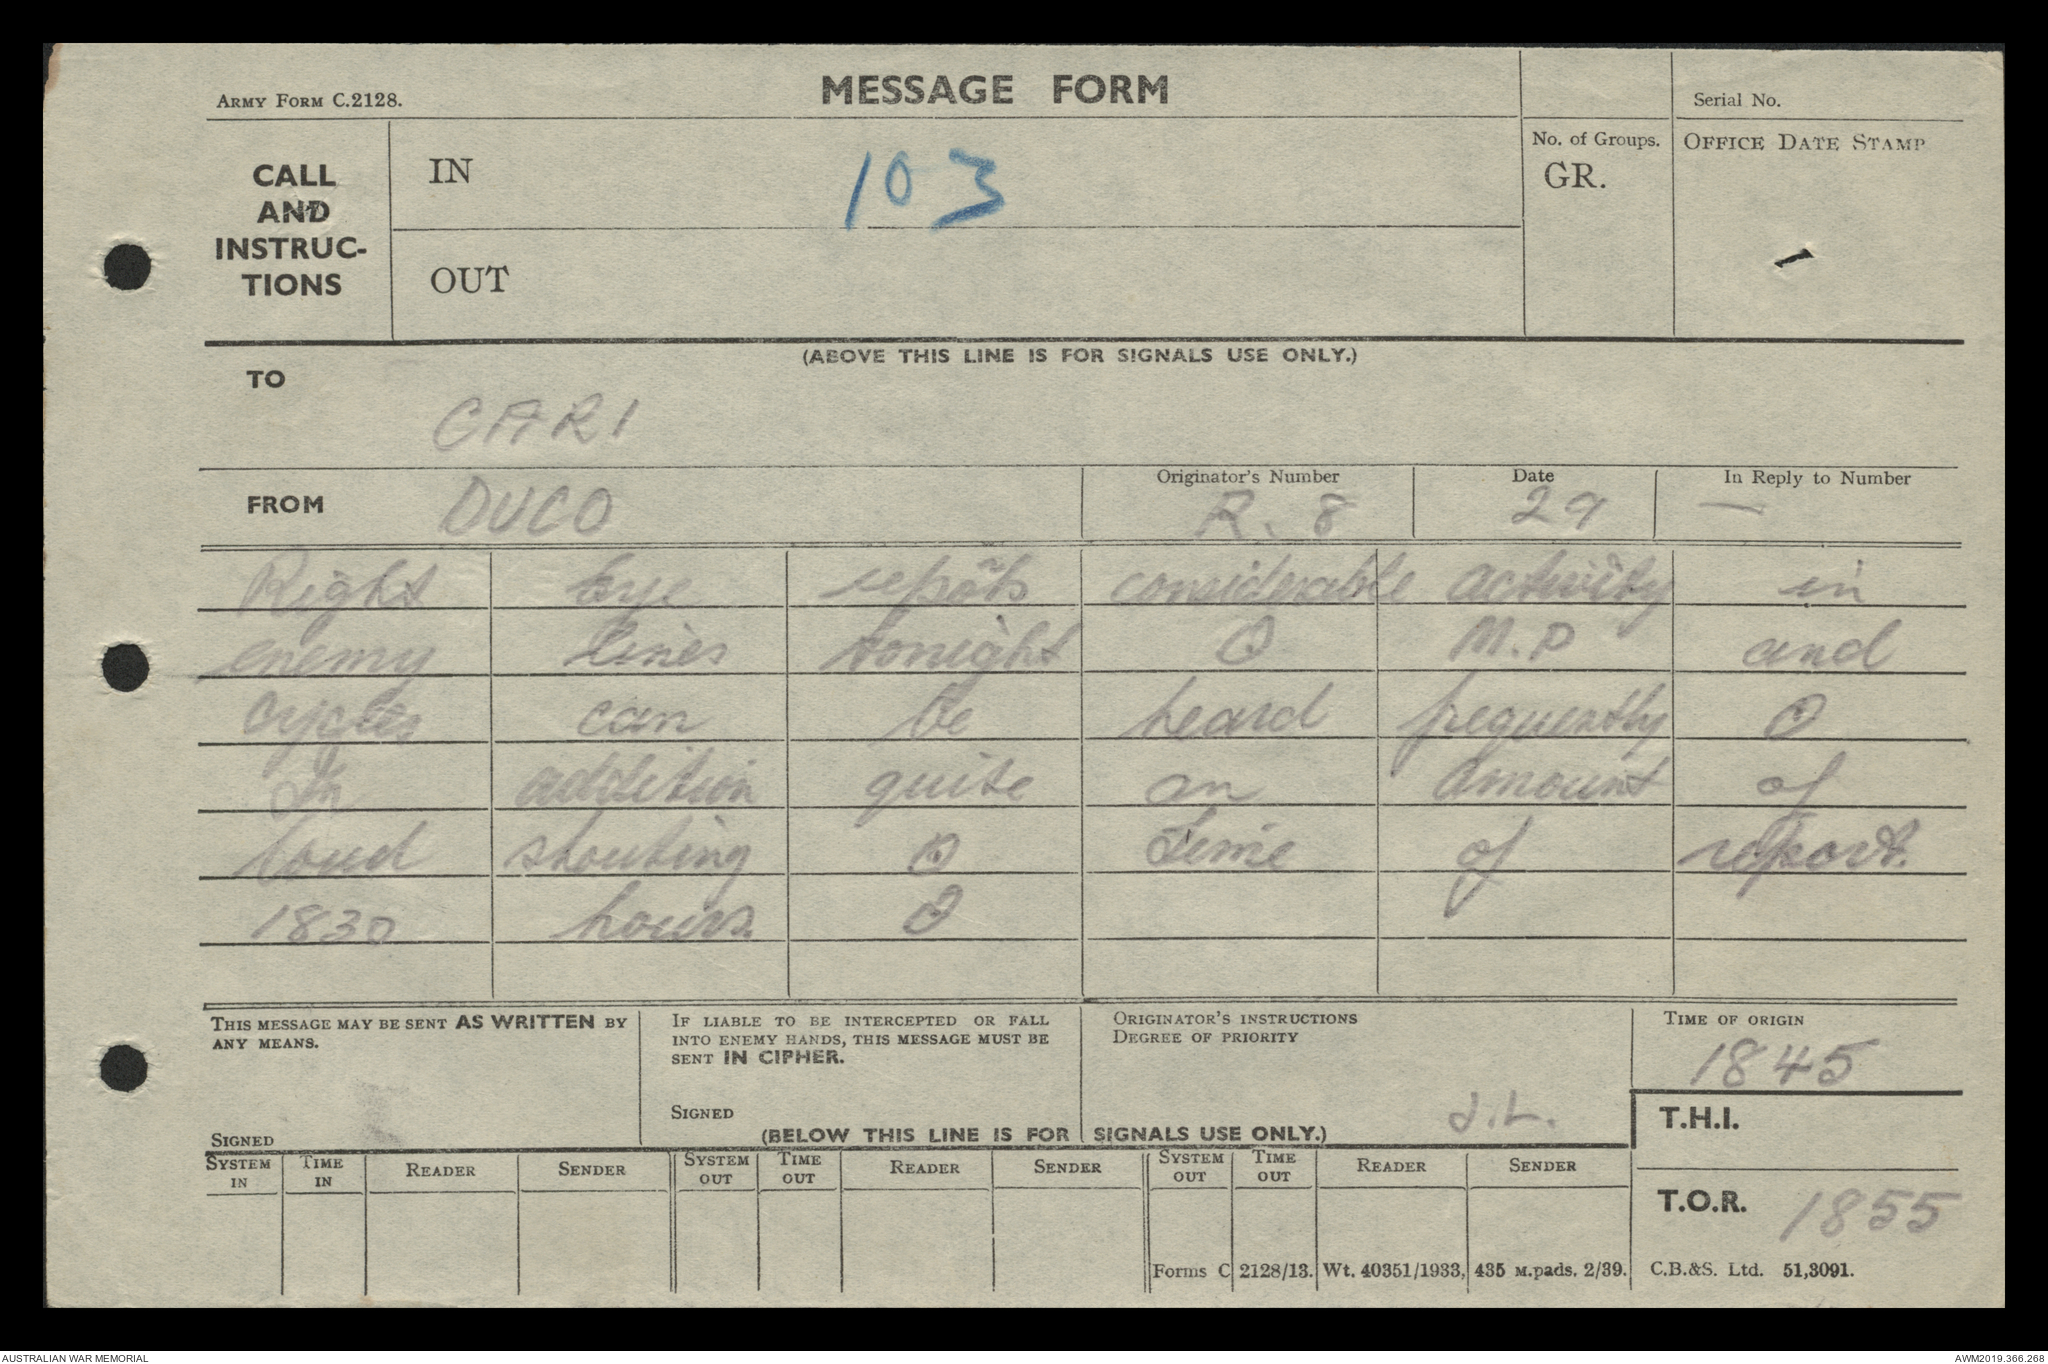 ARMY FORM C.2128.
MESSAGE FORM
Serial No.
CALL AND INSTRUC-TIONS
IN
103
No. of Groups.
GR.
OFFICE DATE STAMP
OUT
(ABOVE THIS LINE IS FOR SIGNALS USE ONLY.)
TO
CARI
FROM
DUCO
Originator's Number
R. 8
Date
29
In Reply to Number
—
Right Eye reports considerable activity in
enemy lines tonight O M.P and
cycles can be heard frequently O
In addition quite an amount of
loud shouting O Time of report.
1830 hours. O
THIS MESSAGE MAY BE SENT AS WRITTEN BY
ANY MEANS.
SIGNED
IF LIABLE TO BE INTERCEPTED OR FALL
INTO ENEMY HANDS, THIS MESSAGE MUST BE
SENT IN CIPHER.
SIGNED
ORIGINATOR'S INSTRUCTIONS
DEGREE OF PRIORITY
J.L.
TIME OF ORIGIN
1845
(BELOW THIS LINE IS FOR SIGNALS USE ONLY.)
T.H.I.
SYSTEM IN
TIME IN
READER
SENDER
SYSTEM OUT
TIME OUT
READER
SENDER
SYSTEM OUT
TIME OUT
READER
SENDER
T.O.R. 1855
Forms C 2128/13. Wt. 40351/1933, 435 M.pads. 2/39. C.B.&S. Ltd. 51,3091.
AUSTRALIAN WAR MEMORIAL
AWM2019.366.268